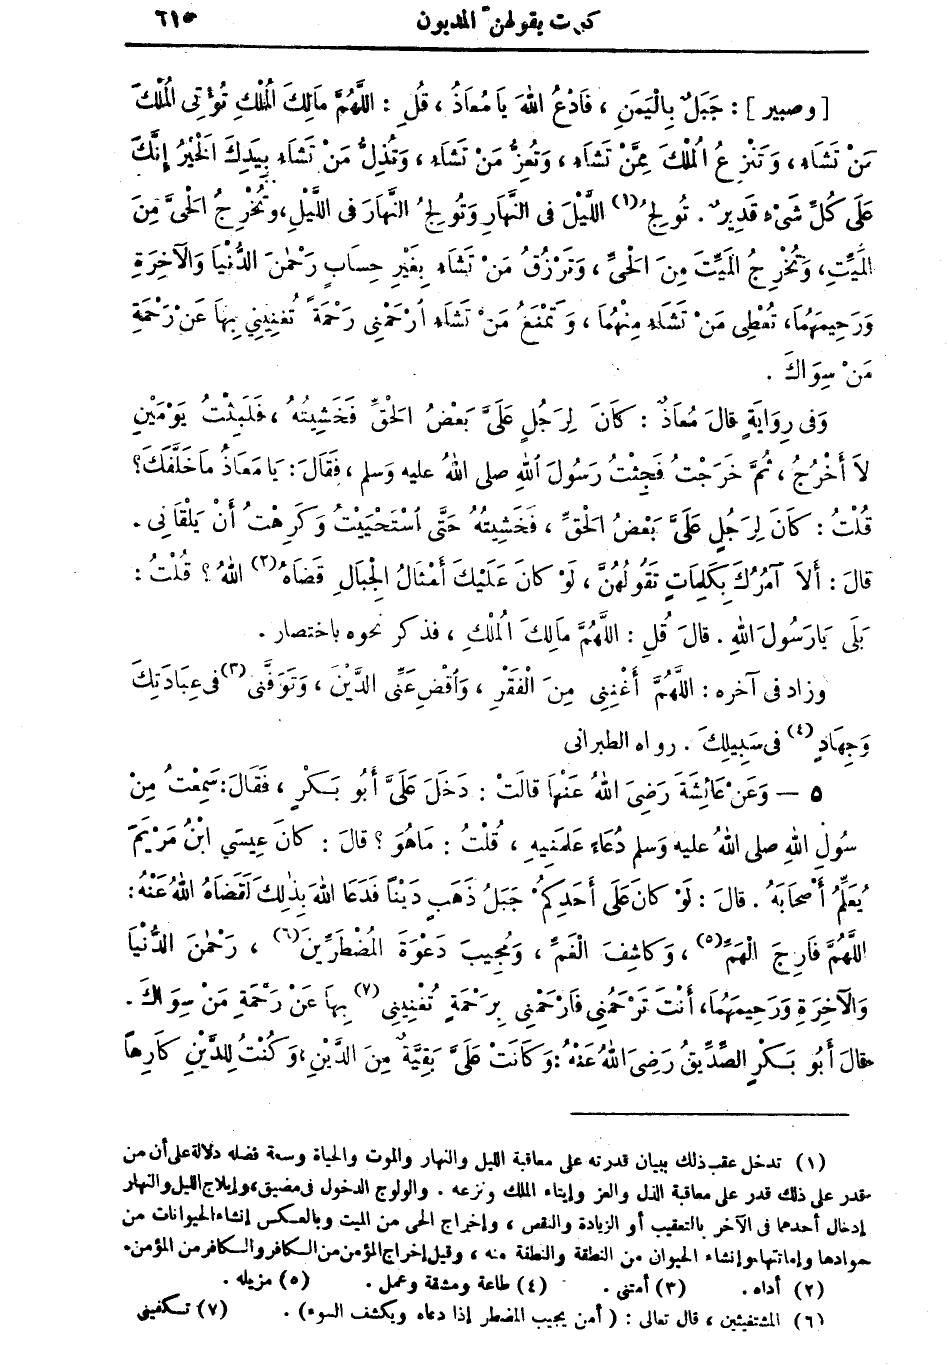 كلمات يقولهن المديون ٦١٥
[ وصبير ] : جَبَلٌ بِالْيَمَنِ ، فَادْعُ اللهَ يَا مُعَاذُ ، قُلِ : اللَّهُمَّ مَالِكَ الْمُلْكِ تُؤْتِى الْمُلْكَ
مَنْ تَشَاءُ ، وَتَنْزِعُ الْمُلْكَ مِمَّنْ تَشَاءُ ، وَتُعِزُّ مَنْ تَشَاءُ ، وَتُذِلُّ مَنْ تَشَاءُ بِيَدِكَ الْخَيْرُ إِنَّكَ
عَلَى كُلِّ شَىْءٍ قَدِيرٌ . تُولِجُ (١) اللَّيْلَ فِى النَّهَارِ وَتُولِجُ النَّهَارَ فِى اللَّيْلِ ، وَتُخْرِجُ الْحَىَّ مِنَ
الْمَيِّتِ ، وَتُخْرِجُ الْمَيِّتَ مِنَ الْحَىِّ ، وَتَرْزُقُ مَنْ تَشَاءُ بِغَيْرِ حِسَابٍ رَحْمٰنَ الدُّنْيَا وَالْآخِرَةِ
وَرَحِيمَهُمَا ، تُعْطِى مَنْ تَشَاءُ مِنْهُمَا ، وَتَمْنَعُ مَنْ تَشَاءُ ارْحَمْنِى رَحْمَةً تُغْنِينِي بِهَا عَنْ رَحْمَةِ
مَنْ سِوَاكَ .
وَفِى رِوَايَةٍ قَالَ مُعَاذٌ : كَانَ لِرَجُلٍ عَلَىَّ بَعْضُ الْحَقِّ فَخَشِيتُهُ ، فَلَبِثْتُ يَوْمَيْنِ
لاَ أَخْرُجُ ، ثُمَّ خَرَجْتُ فَجِئْتُ رَسُولَ اللهِ صلى اللهُ عليه وَسلم ، فَقَالَ : يَا مُعَاذُ مَا خَلَّفَكَ ؟
قُلْتُ : كَانَ لِرَجُلٍ عَلَىَّ بَعْضُ الْحَقِّ ، فَخَشِيتُهُ حَتَّى اسْتَحْيَيْتُ وَكَرِهْتُ أَنْ يَلْقَانِى .
قَالَ : أَلاَ آمُرُكَ بِكَلِمَاتٍ تَقُولُهُنَّ ، لَوْ كَانَ عَلَيْكَ أَمْثَالُ الْجِبَالِ قَضَاهُ (٢) اللهُ ؟ قُلْتُ :
بَلَى يَارَسُولَ اللهِ . قَالَ قُلِ : اللَّهُمَّ مَالِكَ الْمُلْكِ ، فذكر نحوه باختصار .
وزاد فى آخره : اللَّهُمَّ أَغْنِنِى مِنَ الْفَقْرِ ، وَاقْضِ عَنِّى الدَّيْنَ ، وَتَوَفَّنِى (٣) فى عِبَادَتِكَ
وَجِهَادٍ (٤) فى سَبِيلِكَ . رواه الطبرانى
٥ — وَعَنْ عَائِشَةَ رَضِىَ اللهُ عَنْهَا قَالَتْ : دَخَلَ عَلَىَّ أَبُو بَكْرٍ ، فَقَالَ : سَمِعْتُ مِنْ
سُولِ اللهِ صلى اللهُ عليه وَسلم دُعَاءً عَلَّمَنِيهِ ، قُلْتُ : مَا هُوَ ؟ قَالَ : كَانَ عِيسَي ابْنُ مَرْيَمَ
يُعَلِّمُ أَصْحَابَهُ . قَالَ : لَوْ كَانَ عَلَى أَحَدِكُمْ جَبَلُ ذَهَبٍ دَيْنًا فَدَعَا اللهَ بِذٰلِكَ لَقَضَاهُ اللهُ عَنْهُ :
اللَّهُمَّ فَارِجَ الْهَمِّ (٥) ، وَكَاشِفَ الْغَمِّ ، وَمُجِيبَ دَعْوَةَ الْمُضْطَرِّينَ (٦) ، رَحْمٰنَ الدُّنْيَا
وَالْآخِرَةِ وَرَحِيمَهُمَا ، أَنْتَ تَرْحَمُنِي فَارْحَمْنِي بِرَحْمَةٍ تُغْنِينِي (٧) بِهَا عَنْ رَحْمَةِ مَنْ سِوَاكَ .
قَالَ أَبُو بَكْرٍ الصِّدِّيقُ رَضِىَ اللهُ عَنْهُ : وَكَانَتْ عَلَىَّ بَقِيَّةٌ مِنَ الدَّيْنِ ، وَكُنْتُ لِلدَّيْنِ كَارِهًا
(١) تدخل عقب ذلك ببيان قدرته على معاقبة الليل والنهار والموت والحياة وسعة فضله دلالة على أن من
قدر على ذلك قدر على معاقبة الذل والعز وإيتاء الملك ونزعه . والولوج الدخول فى مضيق ، وإيلاج الليل والنهار
إدخال أحدهما فى الآخر بالتعقيب أو الزيادة والنقص ، وإخراج الحى من الميت وبالعكس إنشاء الحيوانات من
موادها وإماتتها ، وإنشاء الحيوان من النطقة والنطفة منه ، وقيل إخراج المؤمن من الكافر والكافر من المؤمن .
(٢) أداه . (٣) أمتنى . (٤) طاعة ومشقة وعمل . (٥) مزيله .
(٦) المستغيثين ، قال تعالى : ( أمن يجيب المضطر إذا دعاه ويكشف السوء ) . (٧) تكفينى